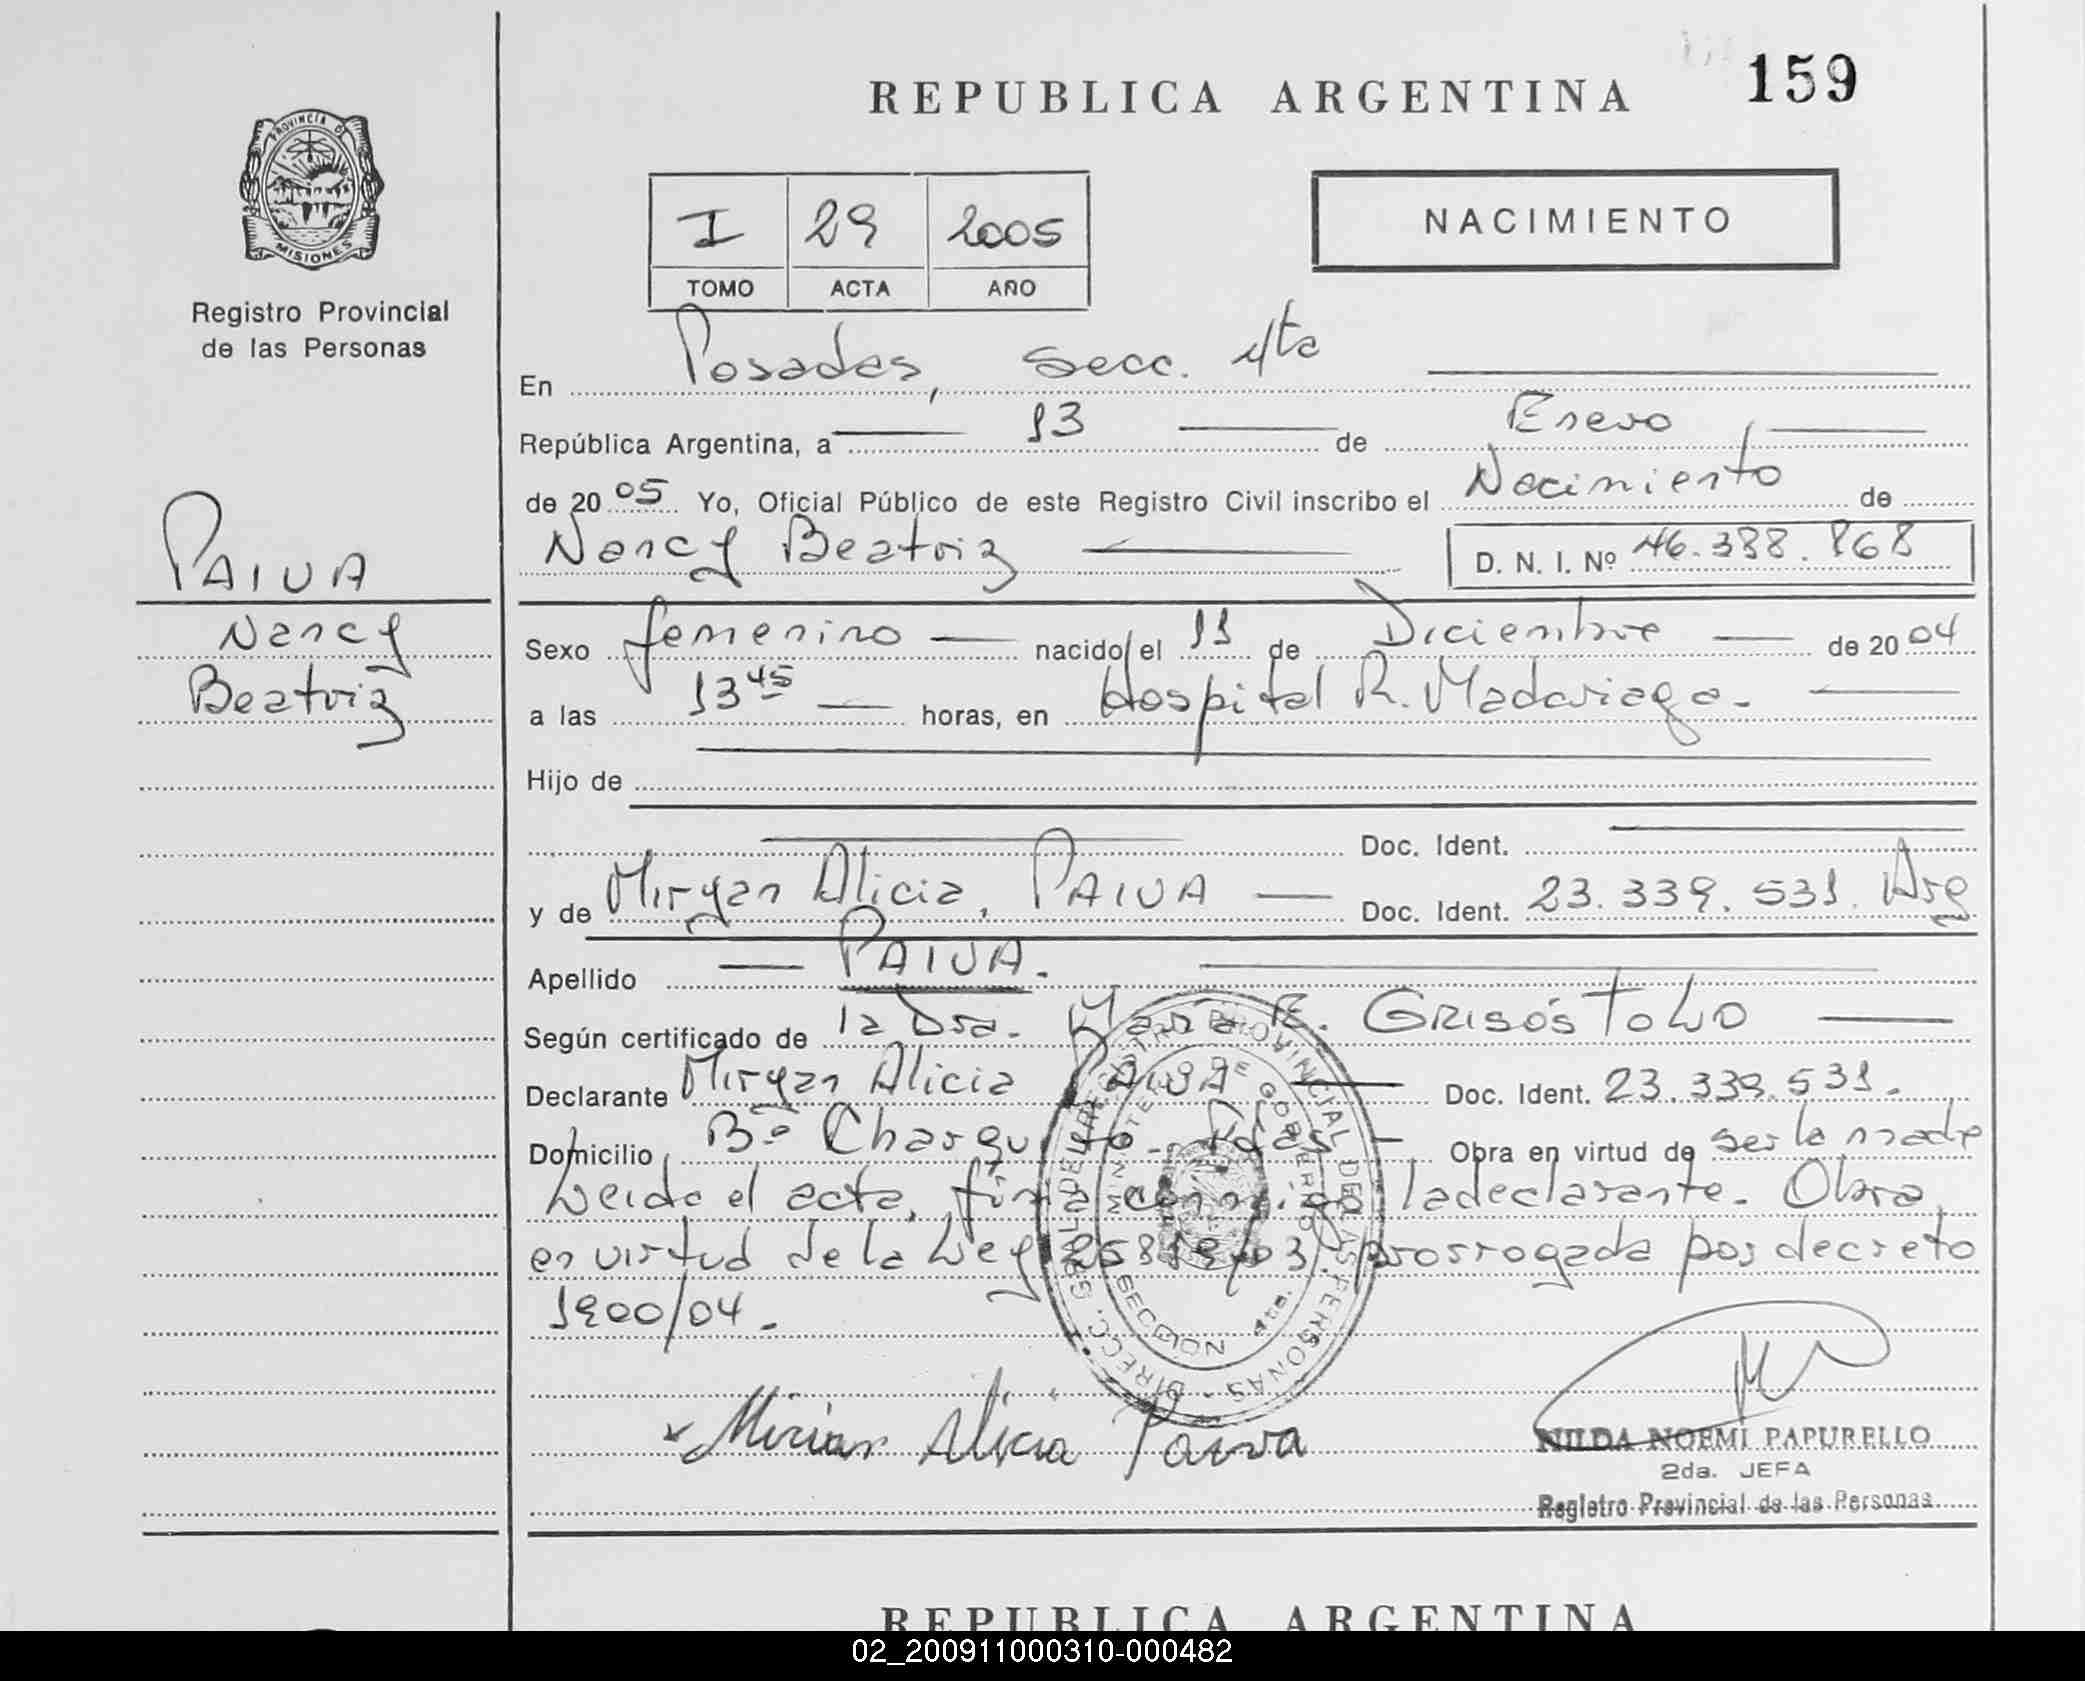 REPUBLICA ARGENTINA 159
PROVINCIA DE MISIONES
Registro Provincial
de las Personas
I 29 2005
TOMO ACTA AÑO
NACIMIENTO
En Posadas, Secc. 4ta
República Argentina, a 13 de Enero
de 2005 Yo, Oficial Público de este Registro Civil inscribo el Nacimiento de
Nancy Beatriz D. N. I. Nº 46.388.868
PAIVA
Nancy
Beatriz
Sexo femenino nacido el 11 de Diciembre de 2004
a las 13 45 horas, en Hospital R. Madariaga.
Hijo de
Doc. Ident.
y de Miryan Alicia, PAIVA Doc. Ident. 23.339.531. Arg
Apellido PAIVA.
Según certificado de la Dra. María E. GRISÓSTOLO
Declarante Miryan Alicia PAIVA Doc. Ident. 23.339.531.
Domicilio Bº Charquito - Pdas Obra en virtud de ser la madre
Leida el acta, firma conmigo la declarante. Obra
en virtud de la Ley 25819/03, prorrogada por decreto
1900/04.
DIRECC. GRAL. DEL REGISTRO PROVINCIAL DE LAS PERSONAS
MINISTERIO DE GOBIERNO
SECCION 4ta.
Mirian Alicia Paiva
NILDA NOEMI PAPURELLO
2da. JEFA
Registro Provincial de las Personas
REPUBLICA ARGENTINA
02_200911000310-000482